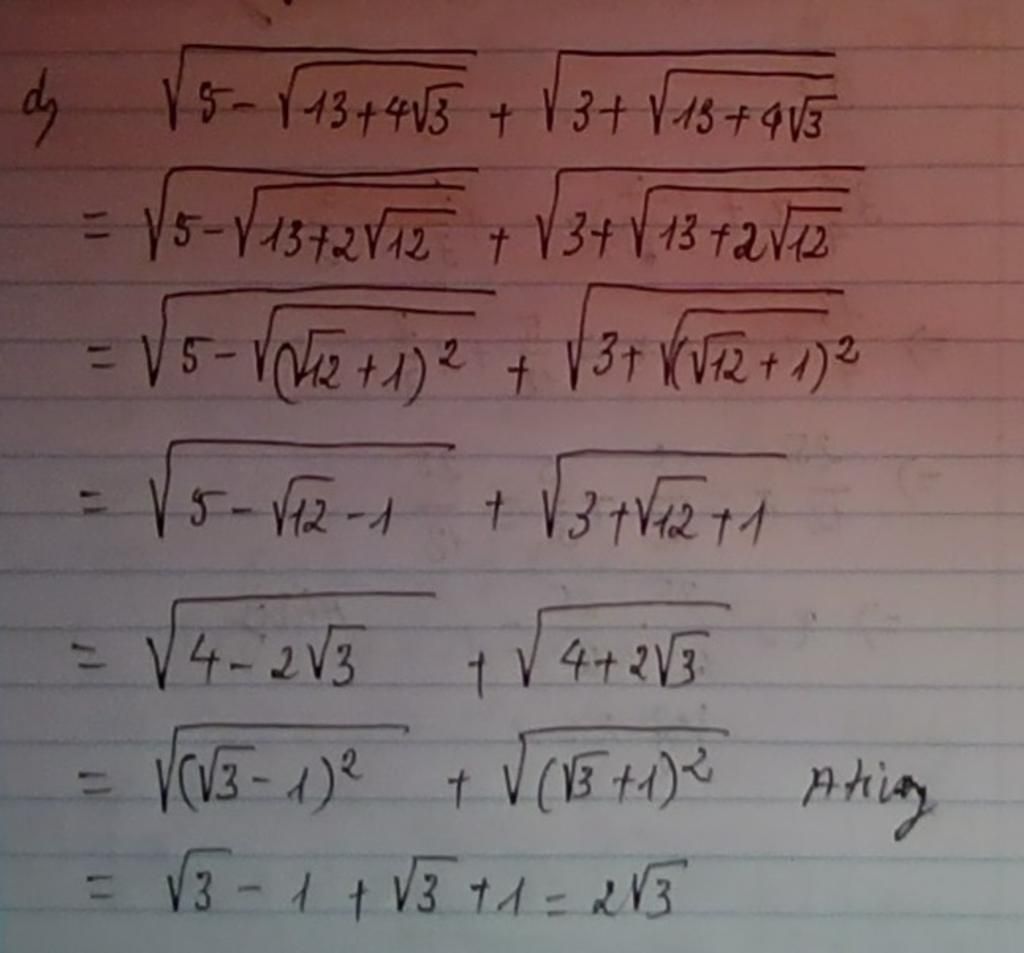 d) √(5-√(13+4√3)) + √(3+√(13+4√3))
= √(5-√(13+2√12)) + √(3+√(13+2√12))
= √(5-√((√12+1)²)) + √(3+√((√12+1)²))
= √(5-√12-1) + √(3+√12+1)
= √(4-2√3) + √(4+2√3)
= √((√3-1)²) + √((√3+1)²)
= √3-1+√3+1=2√3